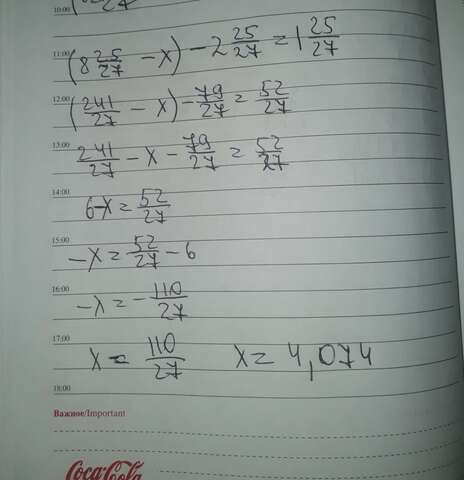 10:00
27
11:00
(8 25/27 - x) - 2 25/27 = 1 25/27
12:00
(241/27 - x) - 79/27 = 52/27
13:00
241/27 - x - 79/27 = 52/27
14:00
6-x = 52/27
15:00
-x = 52/27 - 6
16:00
-x = - 110/27
17:00
x = 110/27 x = 4,074
18:00
Важное/Important
Coca-Cola